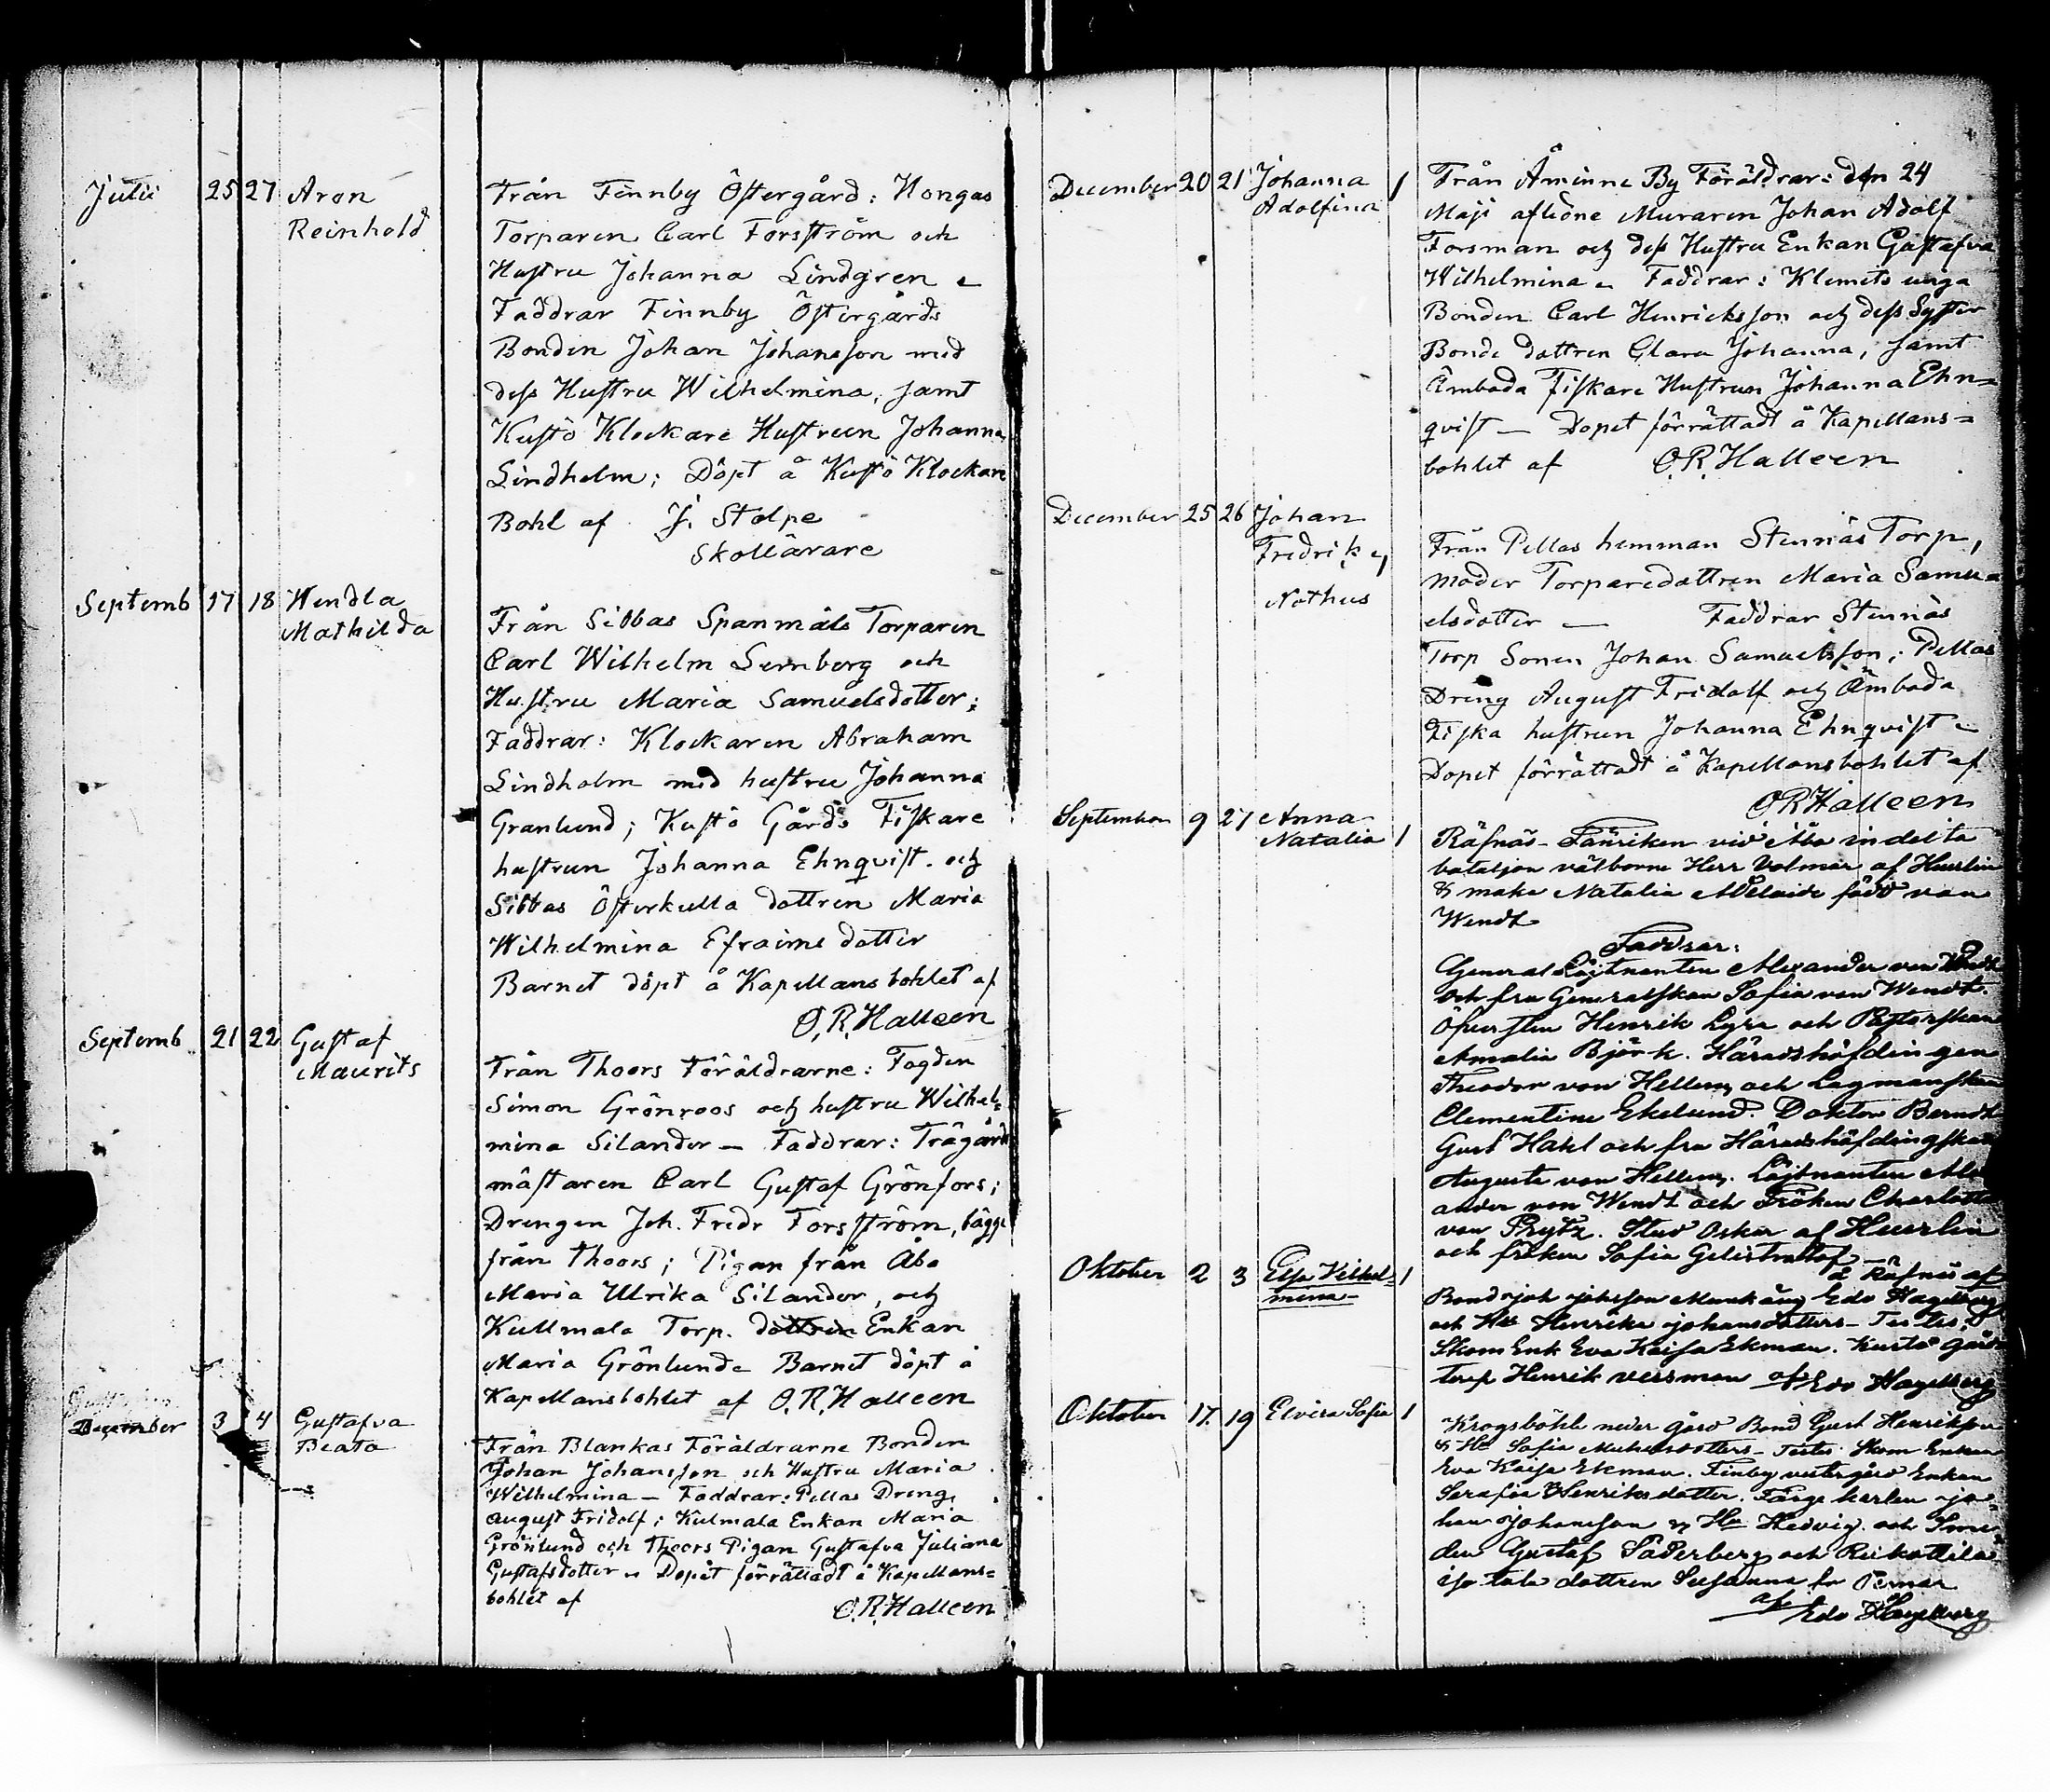 Julii 25 27 Aron
Reinhold
Från Finnby Östergård: Hongas
Torparen Carl Forsström och
Hustru Johanna Lindgren
Faddrar Finnby Östergårds
Bonden Johan Johansson med
dess Hustru Wilhelmina, samt
Kustö Klockare Hustrun Johanna
Lindholm; Döpt å Kustö Klockare
Bohl af J. Stolpe
Skollärare
Septemb 17 18 Hendla
Mathilda
Från Sibbas Spanmåls Torparen
Carl Wilhelm Lernberg och
Hustru Maria Samuelsdotter;
Faddrar: Klockaren Abraham
Lindholm med hustru Johanna
Granlund; Kustö Gårds Fiskare
hustrun Johanna Ehnqvist och
Sibbas Österkulla dottren Maria
Wilhelmina Efraims dotter
Barnet döpt å Kapellans bohlet af
O.R. Halleen
Septemb 21 22 Gustaf
Maurits
Från Thoors Föräldrarne: Fogden
Simon Grönroos och hustru Wilhel=
mina Silander — Faddrar: Trägårds
mästaren Carl Gustaf Grönfors;
Drengen Joh. Fredr Forsström, bägge
från Thoors; Pigan från Åbo
Maria Ulrika Silander, och
Kullmala Torp. dottren Enkan
Maria Grönlund Barnet döpt å
Kapellansbohlet af O.R. Halleen
December 3 4 Gustafva
Beata
Från Blankas Föräldrarne Bonden
Johan Johansson och Hustru Maria
Wilhelmina — Faddrar: Pellas Dreng
August Fridolf; Kulmala Enkan Maria
Grönlund och Thoors Pigan Gustafva Juliana
Gustafsdotter Dopet förrättadt å Kapellans=
bohlet af O.R. Halleen
December 20 21 Johanna
Adolfina 1
Från Åminne By Föräldrar: den 24
Maji aflidne Muraren Johan Adolf
Forsman och dess Hustru Enkan Gustafva
Wilhelmina Faddrar: Klemets unga
Bonden Carl Henricksson och dess Syster
Bonde dottren Clara Johanna, samt
Ämboda Fiskare Hustrun Johanna Ehn=
qvist — Dopet förrättadt å Kapellans=
bohlet af O.R. Halleen
December 25 26 Johan
Fredrik 1
Nothus
Från Pellas hemman Stennäs Torp,
moder Torparedottren Maria Samu=
elsdotter — Faddrar Stennäs
Torp Sonen Johan Samuelsson; Pellas
Dreng August Fridolf och Ämboda
Fiska hustrun Johanna Ehnqvist
Dopet förrättadt å Kapellansbohlet af
O R Halleen
September 9 27 Anna
Natalia 1
Räfnäs - Fänriken vid Åbo indelta
bataljon välborne Herr Volmar af Heurlin
& maka Natalia Adelaide född von
Wendt
Faddrar:
General Löjtnanten Alexander von Wendt
och fru Generalskan Sofia von Wendt.
Öfversten Henrik Lyra och Pastorskan
Amalia Björk. Häradshöfdingen
Theodor von Hellens och Lagmanskan
Clementine Ekelund. Doktor Berndt
Gust Hahl och fru Häradshöfdingskan
Augusta von Hellens. Löjtnanten Alex
ander von Wendt och Fröken Charlotta
von Prytz. Stud Oskar af Heurlin
och fröken Sofia
å Räfnäs af
Edv Hagelberg
Oktober 2 3 Elsa Vilhel=
mina 1
Bond Joh Johsson
och Hu Henrika Johansdotters — Testes:
Skom Enk Eva Kaisa Ekman. Kustö Gårds
torp Henrik af Edv Hagelberg
Oktober 17. 19 Elvira Sofia 1
Krogsböhle neder gård Bond Gust Henrikson
& Hu Sofia — Testes Skom Enkan
Eva Kaisa Ekman. Finby vestergård Enkan
Serafia Henriksdotter. Färge karlen Jo=
han Johansson & Hu Hedvig. och Sme=
den Gustaf Säderberg och
dottren Susanna fr Pemar
af Edv Hagelberg